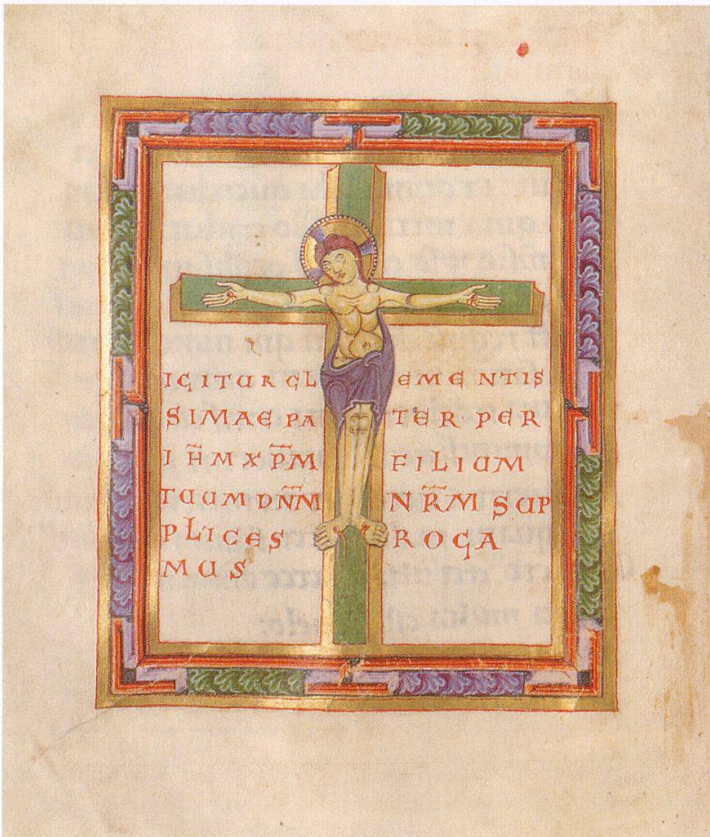 IGITUR CLEMENTIS
SIMAE PATER PER
IH̅M XP̅M FILIUM
TUUM DN̅M̅ NR̅M SUP
PLICES ROGA
MUS